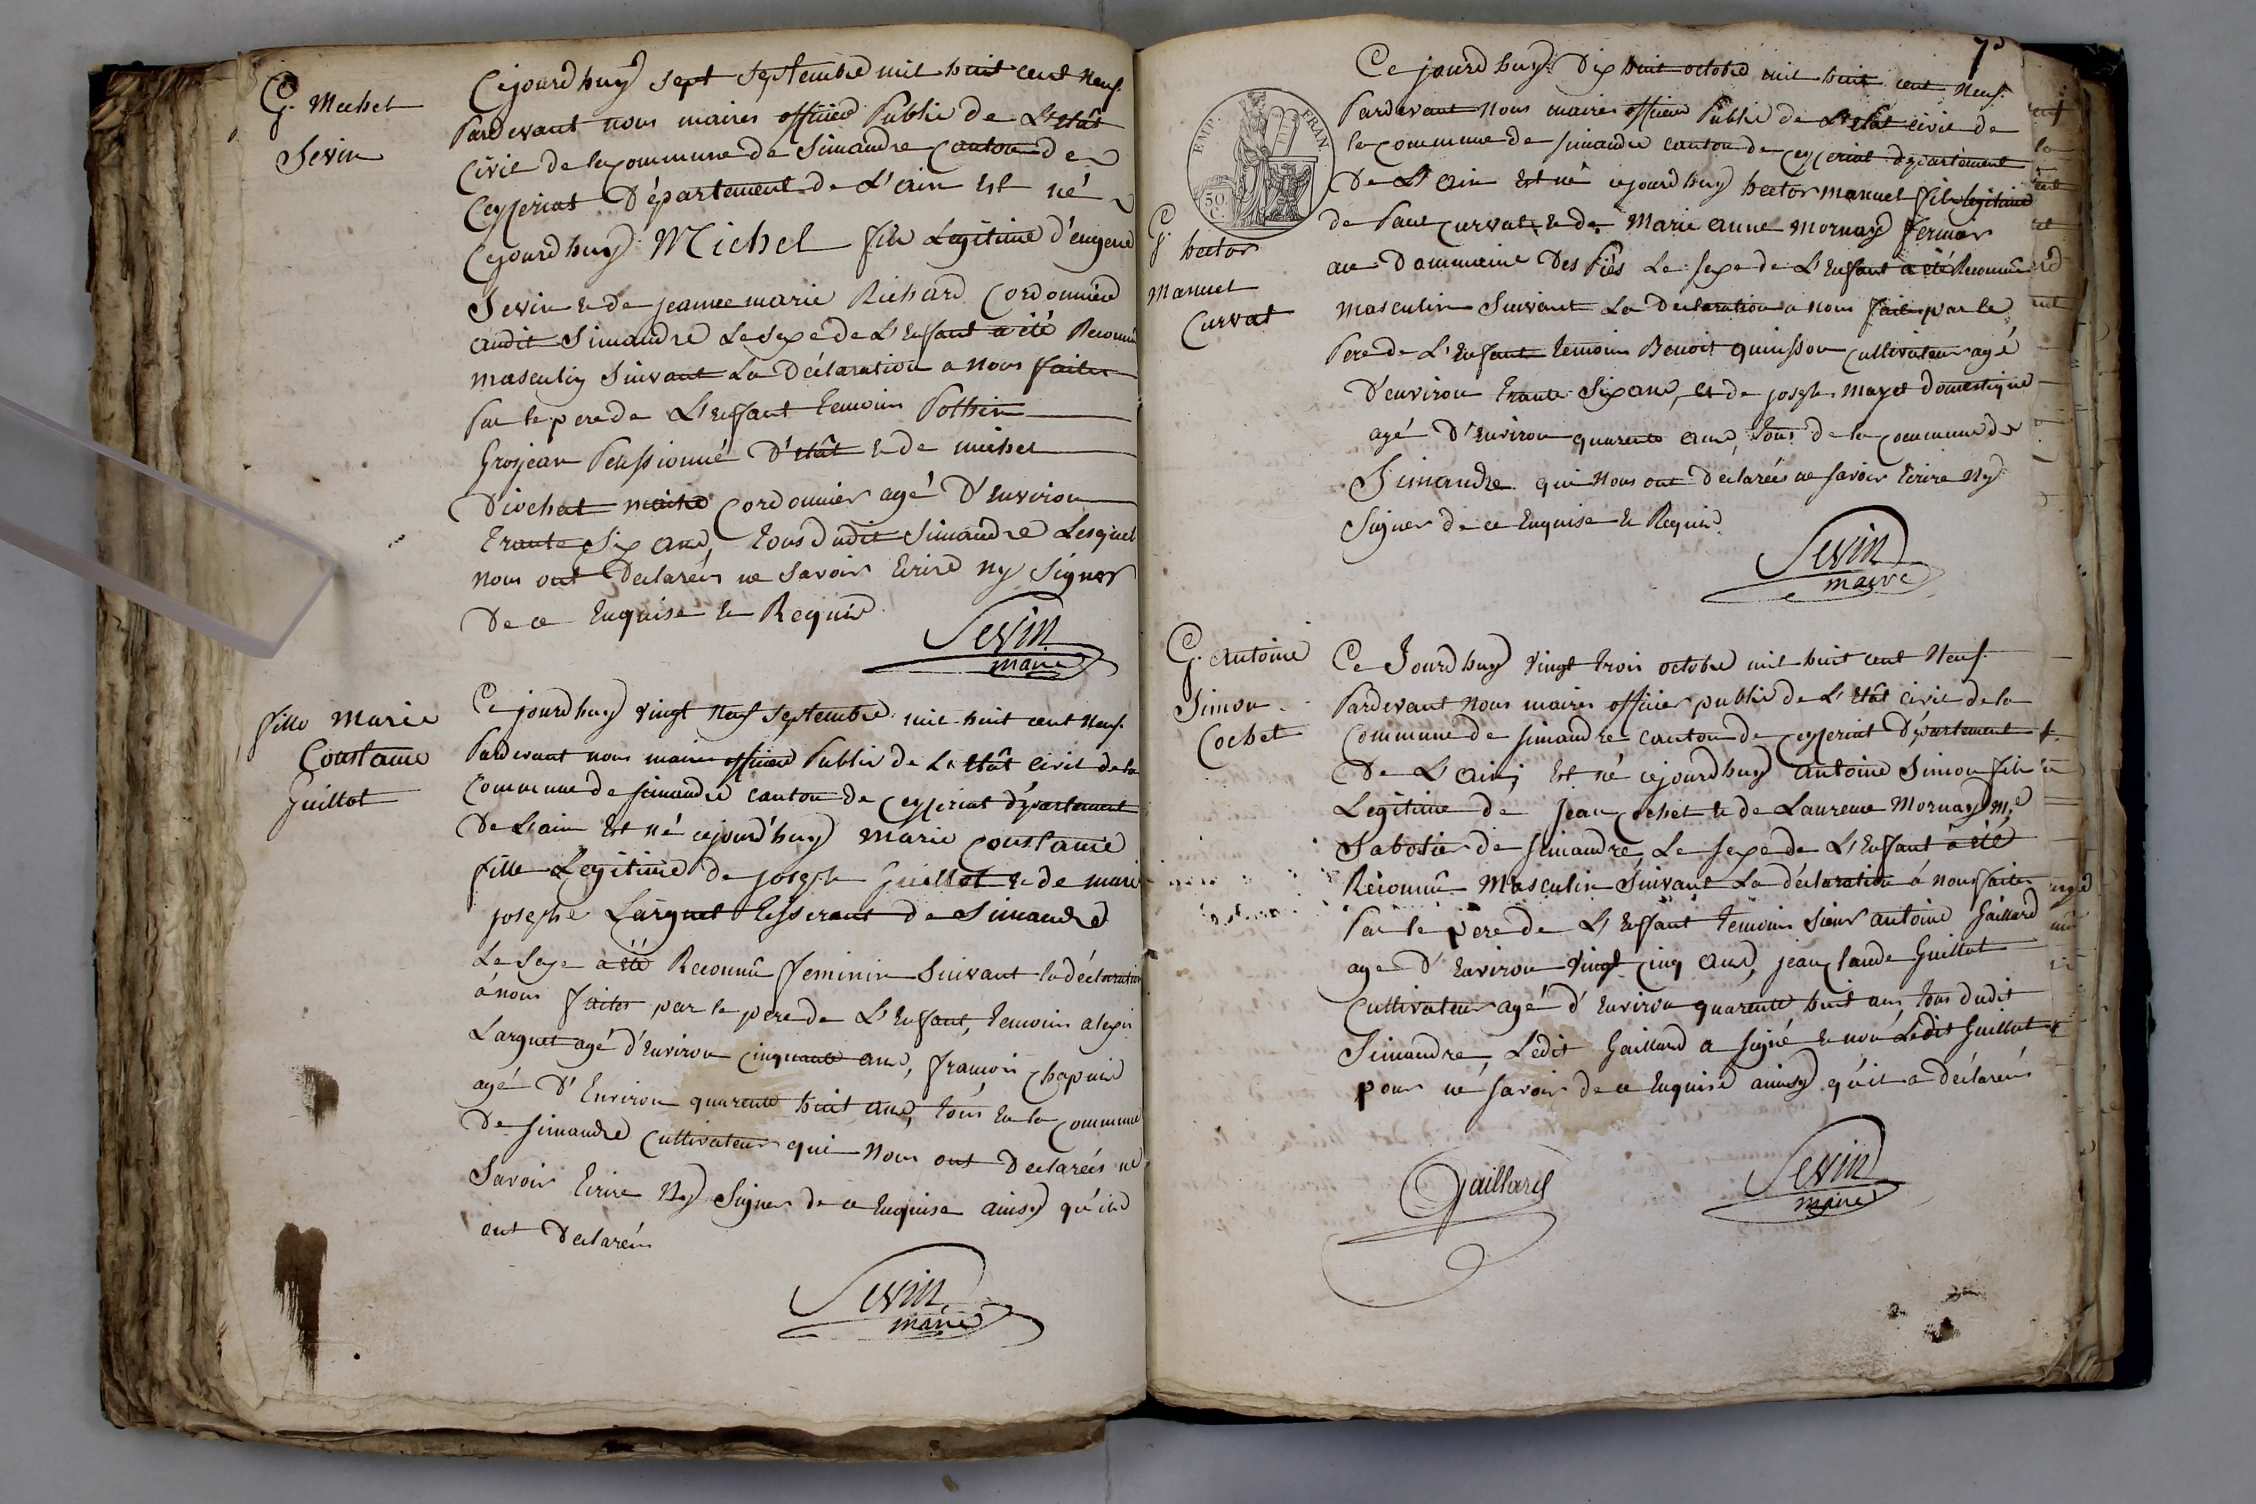 G. Mechel
Sevin
Cejourdhuy sept septembre mil huit cent neuf.
Pardevant nous maires officier Public de L'Etât
Civil de la commune de Simandre Canton de
Ceyzeriat Département de L'ain Est né
Cejourdhuy Michel fils Legitime d'eugene
Sevin & de jeanne marie Richard Cordonnière
audit Simandre Le sexe de L'Enfant a été Reconnu
masculin Suivant La Déclaration a nous faites
Par le pere de L'Enfant temoins Pothin
Grosjean Penssionné D'Etât & de michel
Diochat maitre Cordonnier agé D'Environ
trante Six ans, tous dudit Simandre Lesquel
nous ont Declarées ne savoir Ecrire ny Signer
De ce Enquise & Requis
Sevin
maire
fille Marie
Constance
Guillot
Ce jourdhuy vingt neuf septembre mil huit cent neuf.
Pardevant nous maires officier Public de L'Etât Civil de la
Commune de simandre canton de Ceyzeriat département
De L'ain Est né cejourd'huy Marie Constance
fille Legitime de joseph Guillot & de marie
josephe Larguet tisserant de Simandre
Le Sexe à été Reconnû feminin Suivant la déclaration
à nous faites par le pere de L'Enfant, temoins alexis
Larguet agé d'Environ cinquante ans, françois Chapuis
agé D'Environ quarente huit ans, tous de la Commune
De simandre Cultivateurs qui Nous ont Declarées ne
Savoir Ecrire Ny Signer de ce Enquise ainsy qu'ils
ont Declarées
Sevin
maire
7
EMP. FRAN
50 C.
G.
hector
Manuel
Curvat
Ce jourdhuy Dix huit octobre mil huit cent neuf.
Pardevant nous maires officier Public de L'Etât Civil de
la Commune de simandre canton de Ceyzeriat département
De L'Ain Est né cejourdhuy hector Manuel fils legitime
de Paul Curvat, & de Marie Anne Mornay fermier
au Dommaine Des Piès Le sexe de L'Enfant à été Reconnû
masculin Suivant La Declaration a nous faites par le
Pere de L'Enfant temoins Benoit quinsson Cultivateur agé
D'environ trante Six ans, et de joseph Mayet domestique
agé D'Environ quarente ans, tous de la Commune de
Simandre qui nous ont Declarées ne savoir Ecrire Ny
Signer de ce Enquise & Requis
Sevin
maire
G. Antoine
Simon
Cochet
Ce Jourdhuy vingt trois octobre mil huit cent Neuf.
Pardevant nous maires officier public de L'Etât Civil de la
Commune de simandre canton de Ceyzeriat Département
De L'Ain, Est né cejourdhuy Antoine Simon fils
Legitime de Jean Cochet & de Laurence Mornay m.e
Sabotier de simandre, Le sexe de L'Enfant à été
Reconnû Masculin Suivant La déclaration à nous faites
Par le pere de L'Enfant temoins Sieur antoine Gaillard
age D'Environ vingt Cinq ans, jean Claude Guillot
Cultivateur agé d'Environ quarente huit ans tous dudit
Simandre, Ledit Gaillard a signé & non Ledit Guillot
pour né savoir de ce Enquise ainsy qu'il a déclarés
Gaillard
Sevin
maire